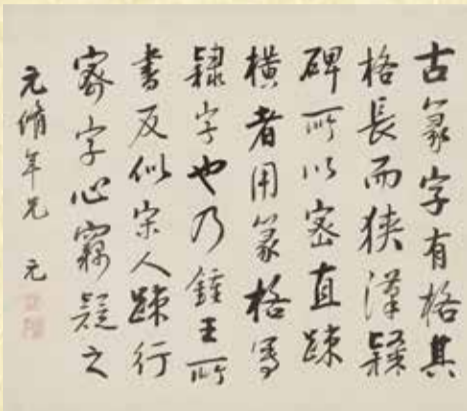 古篆字有格其
格長而狹漢隸
碑所以密直踈
橫者用篆格寫
隸字也乃鍾王所
書反似宋人踈行
密字心竊疑之
元脩年兄 元